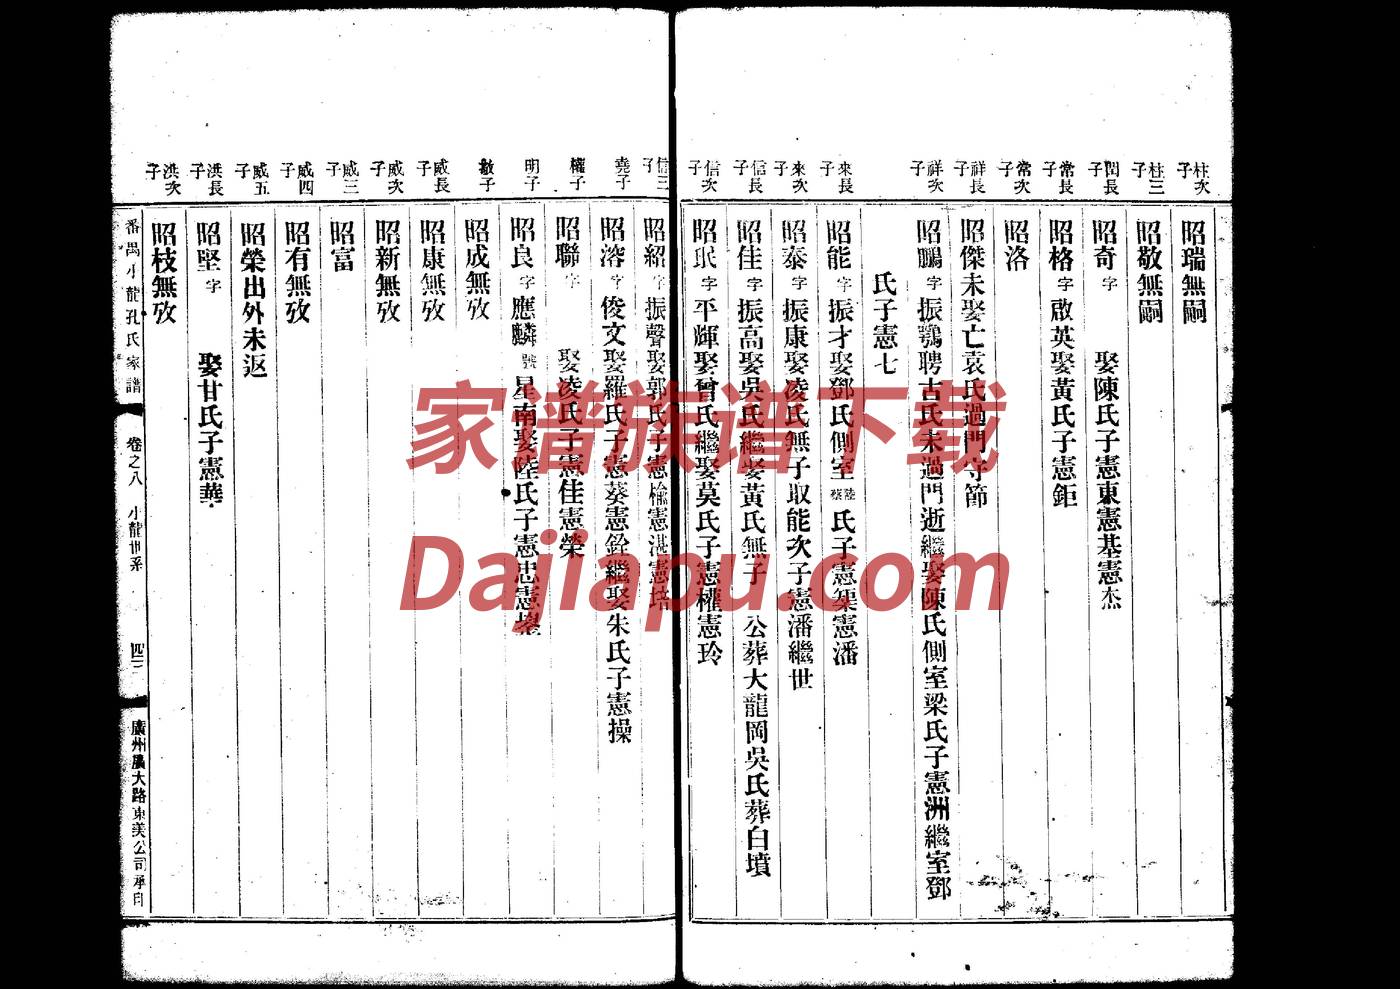 柱次子
昭瑞無嗣
柱三子
昭敬無嗣
閏長子
昭奇字 娶陳氏子憲東憲基憲杰
常長子
昭格字啟英娶黃氏子憲鉅
常次子
昭洛
祥長子
昭傑未娶亡袁氏過門守節
祥次子
昭鵬字振鶚聘古氏未過門逝繼娶陳氏側室梁氏子憲洲繼室鄧
氏子憲七
來長子
昭能字振才娶鄧氏側室陸蔡氏子憲榘憲潘
來次子
昭泰字振康娶凌氏無子取能次子憲潘繼世
信長子
昭佳字振高娶吳氏繼娶黃氏無子 公葬大龍岡吳氏葬白墳
信次子
昭玭字平輝娶曾氏繼娶莫氏子憲權憲玲
信三子
昭紹字振聲娶郭氏子憲榆憲湛憲培
堯子
昭溶字俊文娶羅氏子憲葵憲銓繼娶朱氏子憲操
權子
昭聯字 娶凌氏子憲佳憲榮
明子
昭良字應麟號星南娶陸氏子憲忠憲堃
敬子
昭成無攷
威長子
昭康無攷
威次子
昭新無攷
威三子
昭富
威四子
昭有無攷
威五子
昭榮出外未返
洪長子
昭堅字 娶甘氏子憲華
洪次子
昭枝無攷
番禺小龍孔氏家譜 卷之八 小龍世系 四三 廣州廣大路東美公司承印
家谱族谱下载
Dajiapu.com